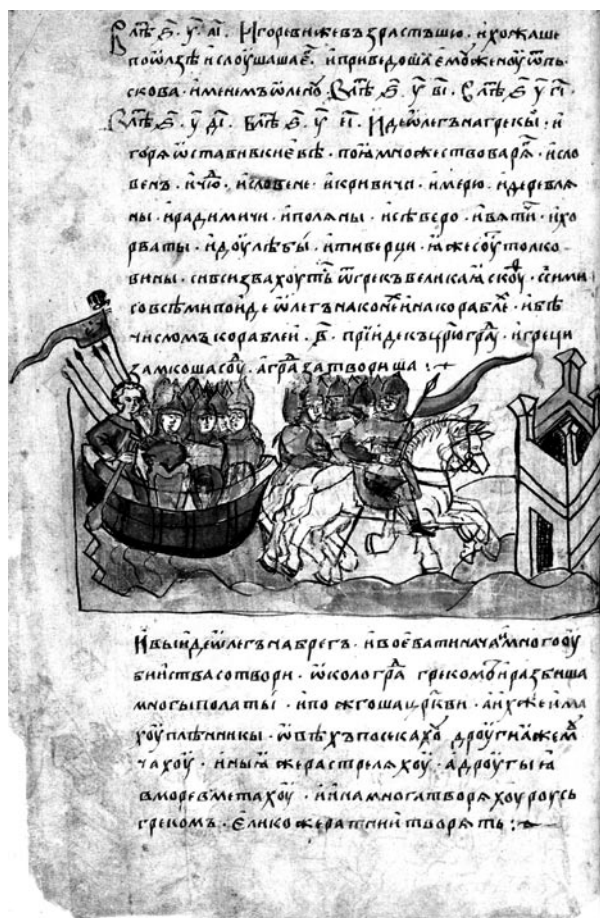 В лⷮѣ ҂ѕ҃. у҃. аі҃. Игореви жевъзрастъшю. ихожаше
поѡлзѣ ислоушашаегⷪ҇. иприведошаемоуженоу ѿпь
скова. именемъ ѡленоу. Влⷮѣ ҂ѕ҃. у҃ ві҃. Влⷮѣ ҂ѕ҃ у҃ гі҃.
Влⷮѣ ҂ѕ҃. у҃ ді҃. Влⷮѣ ҂ѕ҃. у҃ еі҃. Идеѡлегънагрекы. и
горя ѡставивкиевѣ. поімножествоварѧⷢ. исло
венъ. ичюⷣ. исловене. икривичи. имерю. идеревлѧ
ны. ирадимичи. иполѧны. исѣверо. ивѧтичи. ихо
рваты. идоулѣбы. итиверци. ꙗжесоутьтолко
вины. сивсизвахоутьс̑ ѿгрекъвеликаꙗскоуⷴ. ссими
совсѣмипоидеѡлегънаконехъинакораблехъ. ибѣ
числомъкораблеи. в҃. приидекъцрⷭ҇июграⷣу. игреци
замкошасоуⷣ. аграⷣзатвориша :
Ивыидеѡлегънабрегъ. ивоеватинача имногооу
биистваствори. ѡколограⷣа грекомъ иразбиша
многыполаты. ипожгошацрⷪ҇кви. аихжеима
хоуплѣнникы. ѡвѣхъпосекахоу другиꙗжемⷱу
чахоу. иныꙗжерастрелѧхоу. адроугыꙗ
вморевметахоу. иинамногатворѧхоуроусь
грекомъ. еликожератниитворѧть :